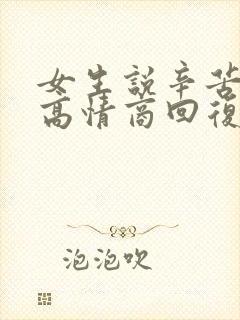 女生説辛苦
高情商回復
泡泡吹